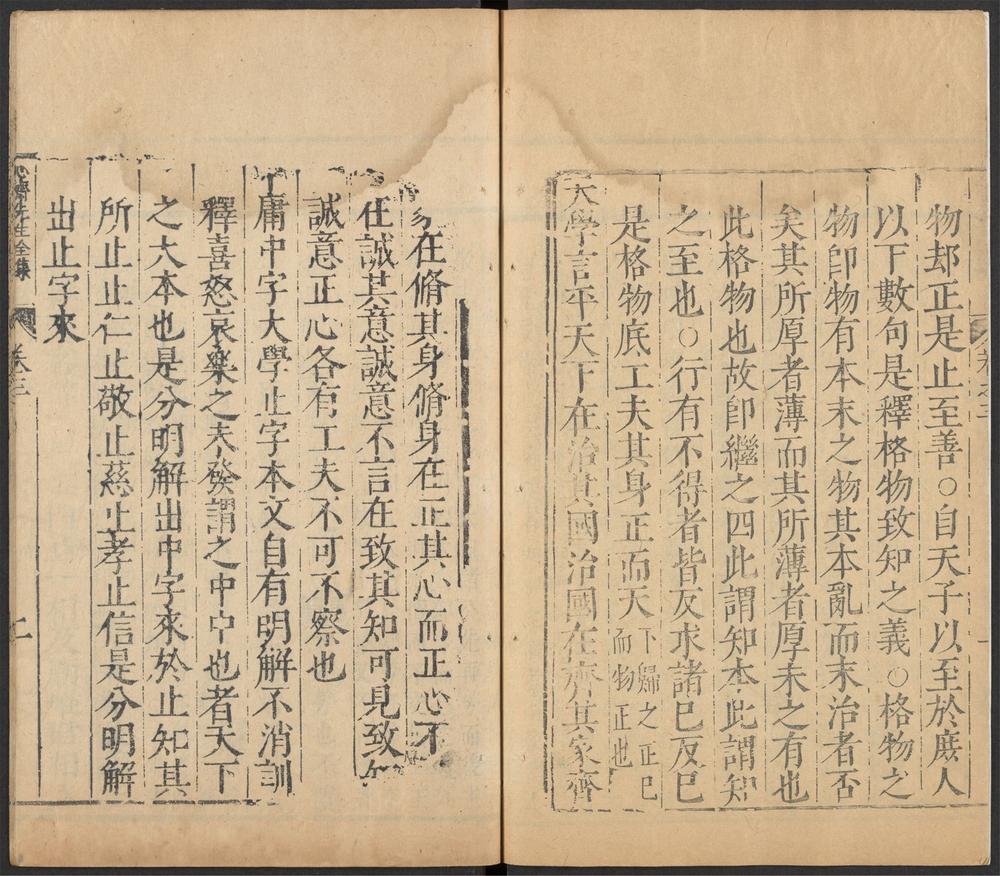 卷之三
物却正是止至善○自天子以至於庶人
以下數句是釋格物致知之義○格物之
物即物有本末之物其本亂而末治者否
矣其所厚者薄而其所薄者厚未之有也
此格物也故即繼之四此謂知本此謂知
之至也○行有不得者皆反求諸已反已
是格物底工夫其身正而天下歸之正已而物正也
大學言平天下在治其國治國在齊其家齊
家在脩其身脩身在正其心而正心不
在誠其意誠意不言在致其知可見致知
誠意正心各有工夫不可不察也
中庸中字大學止字本文自有明解不消訓
釋喜怒哀樂之未發謂之中中也者天下
之大本也是分明解出中字來於止知其
所止止仁止敬止慈止孝止信是分明解
出止字來
心齋先生全集 卷三 二